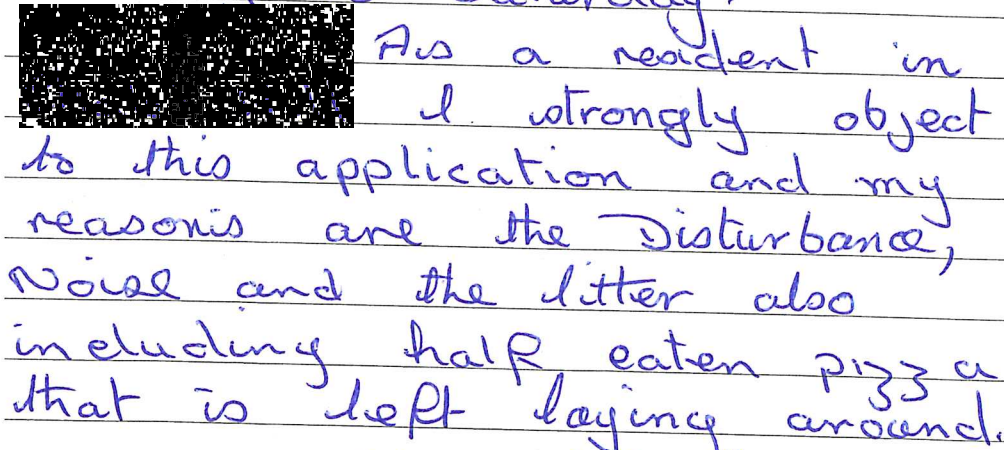 As a resident in
I strongly object
to this application and my
reasons are the Disturbance,
Noise and the litter also
including half eaten pizza
that is left laying around.